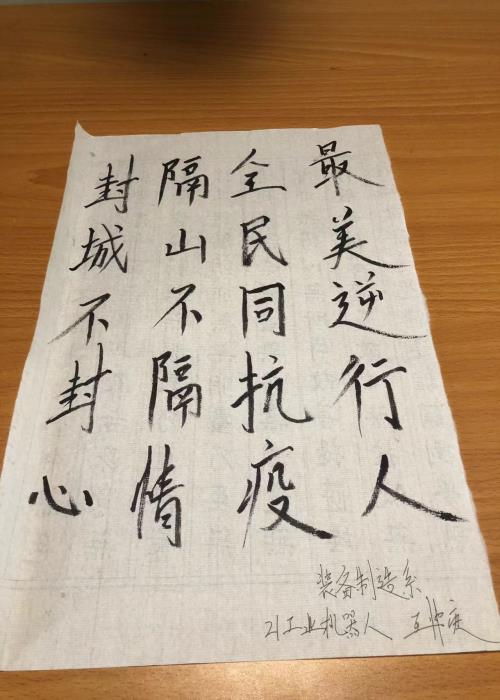 最美逆行人
全民同抗疫
隔山不隔情
封城不封心
装备制造系
21工业机器人